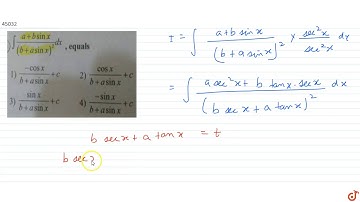 45032
∫ (a+b sin x)/(b+a sin x)² dx , equals
1) -cos x/(b+a sin x) + c 2) cos x/(b+a sin x) + c
3) sin x/(b+a sin x) + c 4) -sin x/(b+a sin x) + c
I = ∫ (a+b sin x)/(b+a sin x)² × sec²x/sec²x
= ∫ (a sec²x + b tan x · sec x)/(b sec x + a tan x)² dx
b sec x + a tan x = t
b sec x